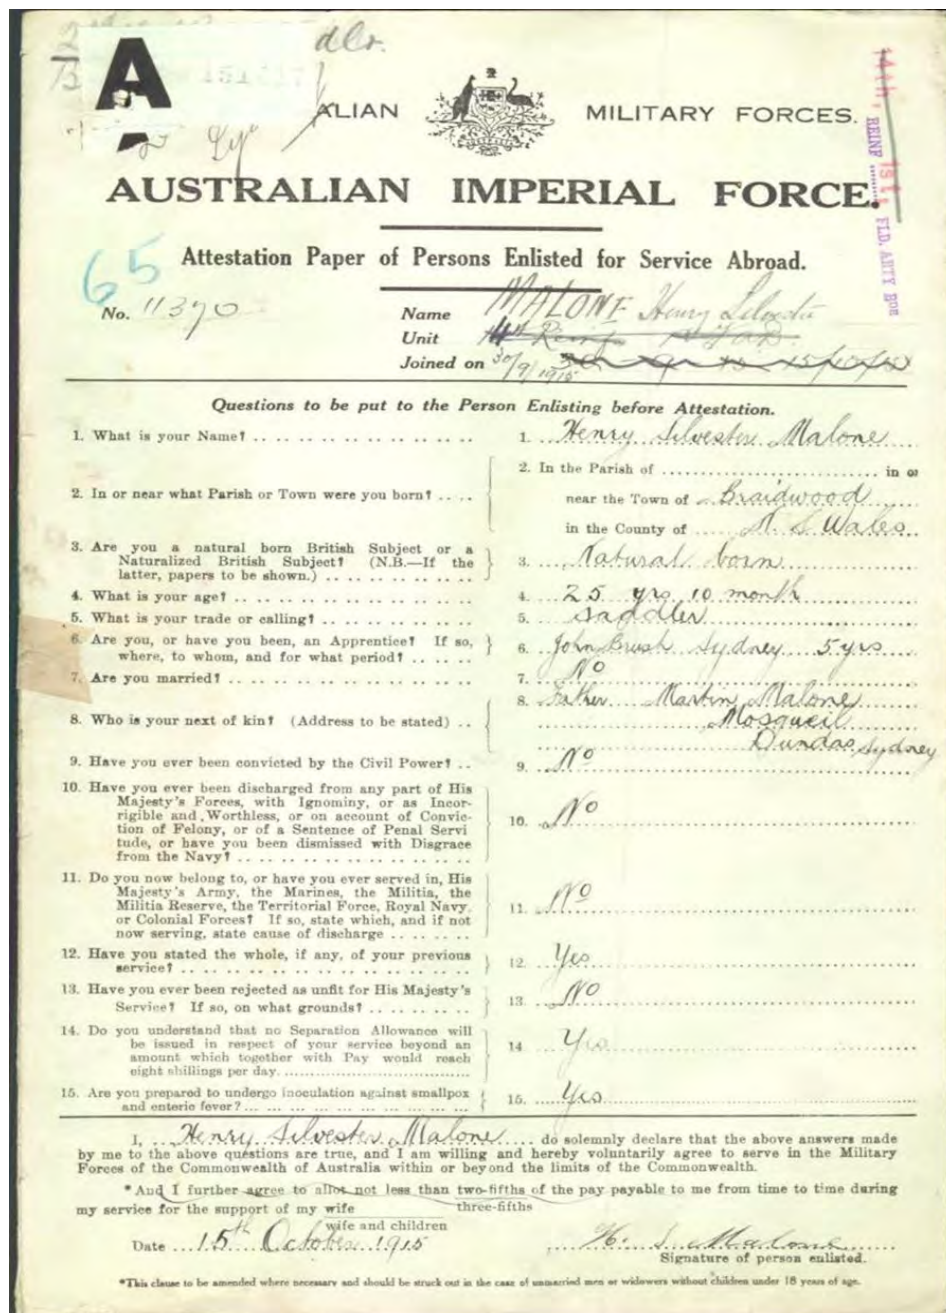 A
dlr.
ALIAN MILITARY FORCES.
AUSTRALIAN IMPERIAL FORCE.
14th, REINF 1st, FLD. ARTY BDE
65
Attestation Paper of Persons Enlisted for Service Abroad.
No. 11370
Name MALONE Henry Silvester
Unit
Joined on 30/9/1915
Questions to be put to the Person Enlisting before Attestation.
1. What is your Name? 1. Henry Silvester Malone
2. In or near what Parish or Town were you born? 2. In the Parish of in or
near the Town of Braidwood
in the County of N. S. Wales
3. Are you a natural born British Subject or a
Naturalized British Subject? (N.B.—If the
latter, papers to be shown.) 3. Natural born
4. What is your age? 4. 25 yrs 10 month
5. What is your trade or calling? 5. Saddler
6. Are you, or have you been, an Apprentice? If so,
where, to whom, and for what period? 6. John Brush Sydney 5 yrs
7. Are you married? 7. No
8. Who is your next of kin? (Address to be stated) 8. Father Martin Malone
Dundas Sydney
9. Have you ever been convicted by the Civil Power? 9. No
10. Have you ever been discharged from any part of His
Majesty's Forces, with Ignominy, or as Incor-
rigible and Worthless, or on account of Convic-
tion of Felony, or of a Sentence of Penal Servi
tude, or have you been dismissed with Disgrace
from the Navy? 10. No
11. Do you now belong to, or have you ever served in, His
Majesty's Army, the Marines, the Militia, the
Militia Reserve, the Territorial Force, Royal Navy,
or Colonial Forces? If so, state which, and if not
now serving, state cause of discharge 11. No
12. Have you stated the whole, if any, of your previous
service? 12. Yes
13. Have you ever been rejected as unfit for His Majesty's
Service? If so, on what grounds? 13. No
14. Do you understand that no Separation Allowance will
be issued in respect of your service beyond an
amount which together with Pay would reach
eight shillings per day. 14 Yes
15. Are you prepared to undergo inoculation against smallpox
and enteric fever? 15. Yes
I, Henry Silvester Malone do solemnly declare that the above answers made
by me to the above questions are true, and I am willing and hereby voluntarily agree to serve in the Military
Forces of the Commonwealth of Australia within or beyond the limits of the Commonwealth.
*And I further agree to allot not less than two-fifths of the pay payable to me from time to time during
three-fifths
my service for the support of my wife
wife and children
Date 15th October 1915 H. S. Malone
Signature of person enlisted.
*This clause to be amended where necessary and should be struck out in the case of unmarried men or widowers without children under 18 years of age.